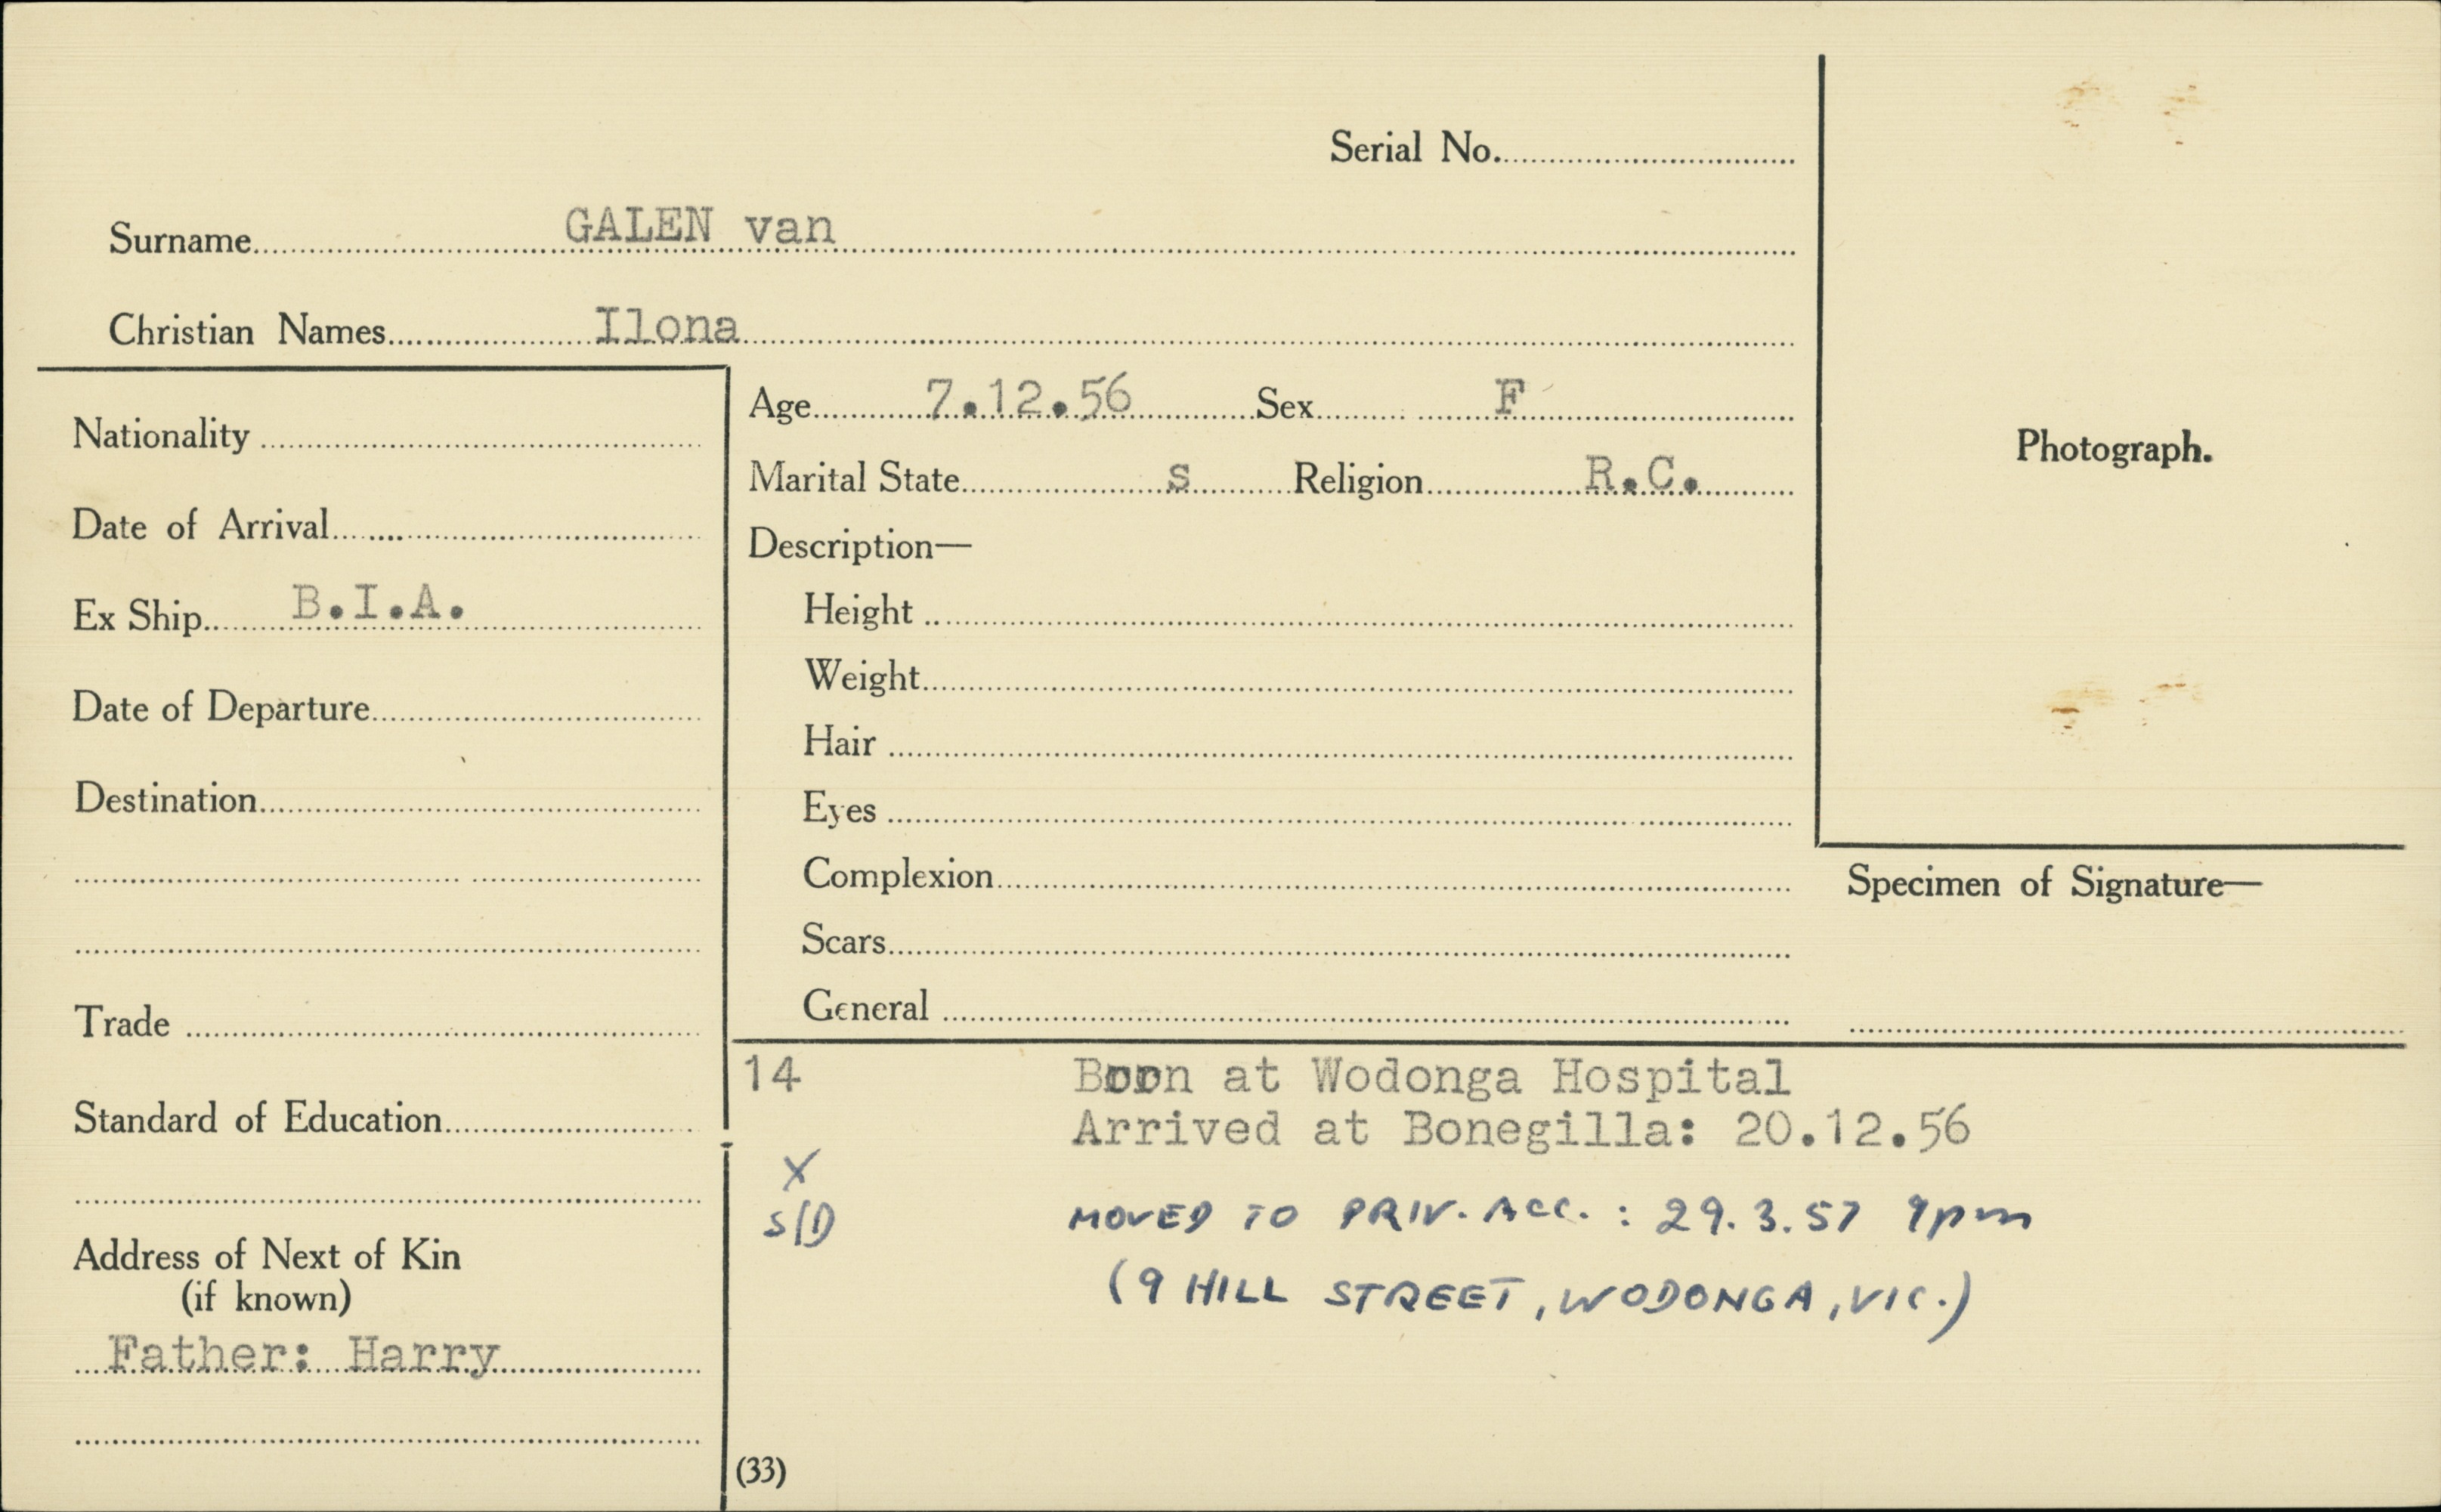 Serial No.
Surname GALEN van
Christian Names Ilona
Nationality
Date of Arrival
Ex Ship B.I.A.
Date of Departure
Destination
Trade
Standard of Education
Address of Next of Kin
(if known)
Father: Harry
Age 7.12.56 Sex F
Marital State s Religion R.C.
Description—
Height
Weight
Hair
Eyes
Complexion
Scars
General
Photograph.
Specimen of Signature—
14 Born at Wodonga Hospital
Arrived at Bonegilla: 20.12.56
X
S/D MOVED TO PRIV. ACC. : 29.3.57 9pm
(9 HILL STREET, WODONGA, VIC.)
(33)